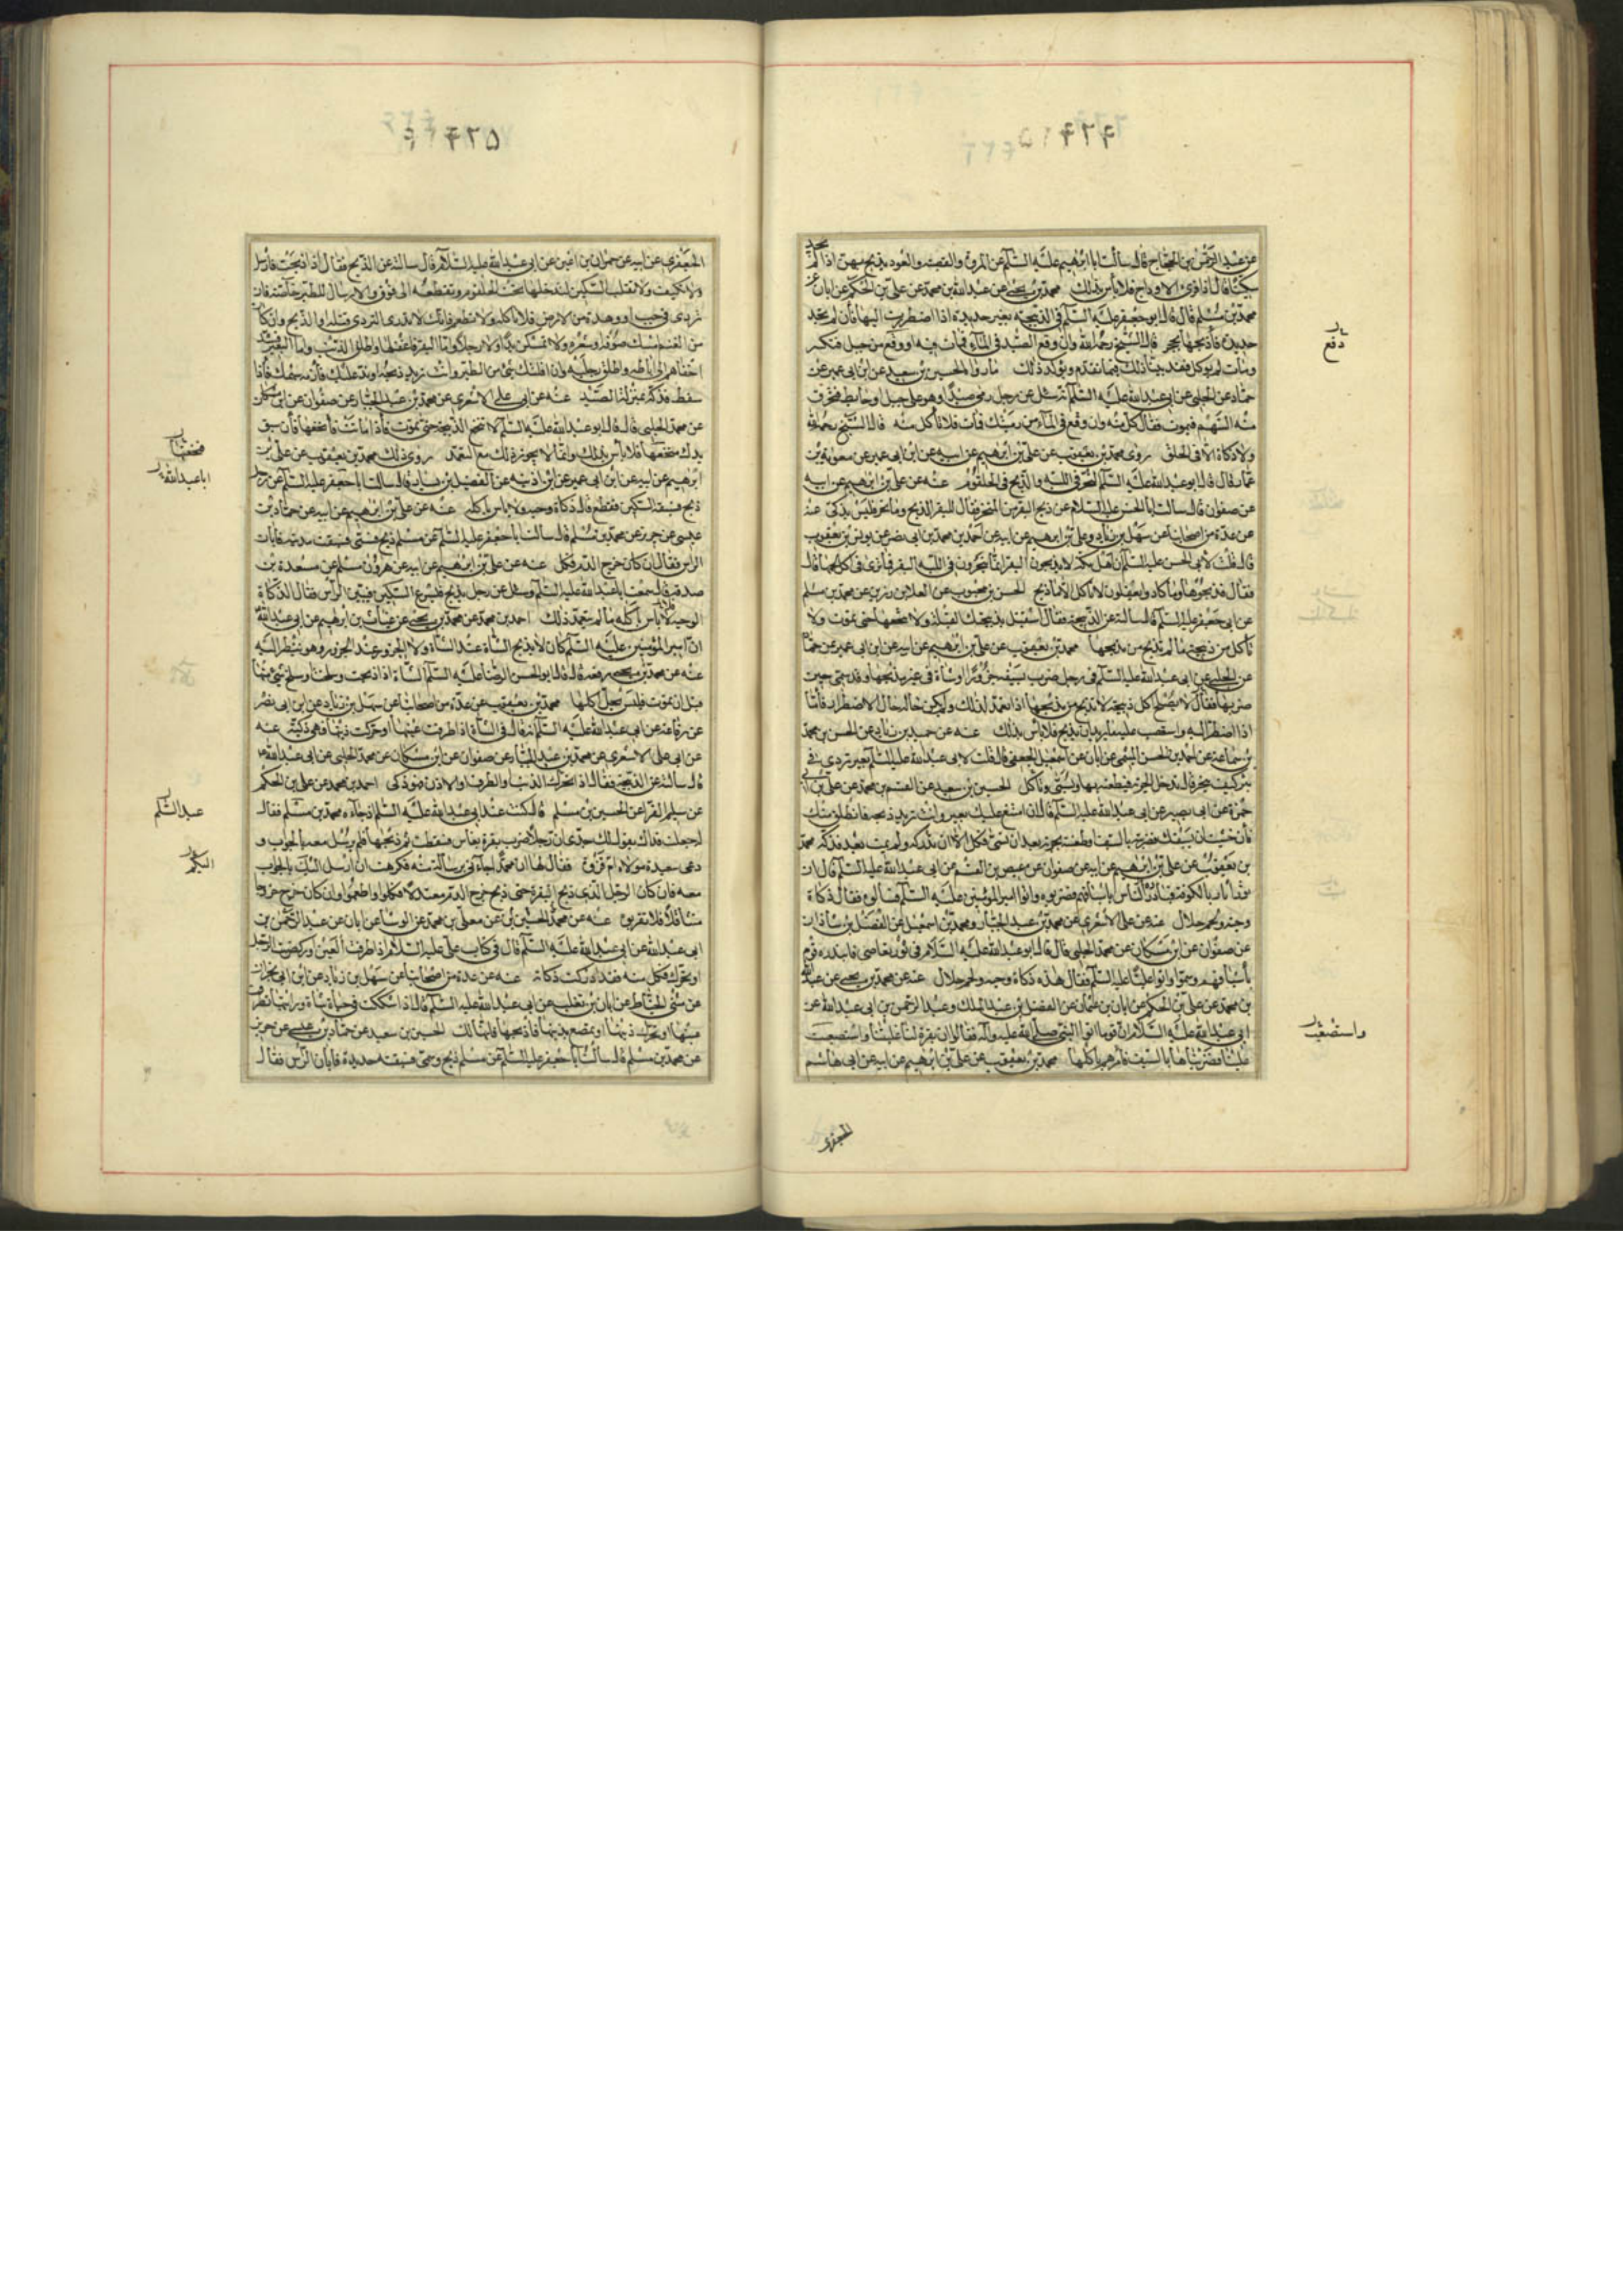 ۴۲۴
عن عبد الرحمن بن الحجاج قال سالت ابا ابراهيم عليه السلم عن المروة والقصبة والعود يذبح بهن اذا لم يجد
سكينا قال اذا فرى الاوداج فلا باس بذلك محمد بن يحيى عن عبد الله بن محمد عن علي بن الحكم عن ابان عن
محمد بن مسلم قال قال ابو جعفر عليه السلم في الذبيحة بغير حديدة اذا اضطررت اليها فان لم تجد
حديدة فاذبحها بحجر قال الشيخ رحمه الله وان وقع الصيد في الماء فمات فيه او وقع من جبل فتكسر
ومات لم يوكل فقد بينا ذلك فيما تقدم ويؤكد ذلك ما رواه الحسين بن سعيد عن ابن ابي عمير عن
حماد عن الحلبي عن ابي عبد الله عليه السلم انه سئل عن رجل رمى صيدا وهو على جبل او حايط فيخرق
فيه السهم فيموت فقال كل منه وان وقع في الماء من رميتك فمات فلا تاكل منه قال الشيخ رحمه الله
ولا ذكاة الا في الحلق روى محمد بن يعقوب عن علي بن ابرهيم عن ابيه عن ابن ابي عمير عن معوية بن
عمار قال قال ابو عبد الله عليه السلم النحر في اللبة والذبح في الحلقوم عنه عن علي بن ابرهيم عن ابيه
عن صفوان قال سالت ابا الحسن عليه السلام عن ذبح البقر من المنحر فقال للبقر الذبح وما نحر فليس بذكي عنه
عن عدة من اصحابنا عن سهل بن زياد وعلي بن ابرهيم عن ابيه عن احمد بن محمد بن ابي نصر عن يونس بن يعقوب
قال قلت لابي الحسن عليه السلم ان اهل مكة لا يذبحون البقر انما ينحرون في اللبة البقر فما ترى في اكل لحمها قال
فقال فذبحوها وما كادوا يفعلون لا تاكل الا ما ذبح الحسن بن محبوب عن العلا بن رزين عن محمد بن مسلم
عن ابي جعفر عليه السلم قال سالته عن الذبيحة فقال استقبل بذبيحتك القبلة ولا تنخعها حتى تموت ولا
تاكل من ذبيحة ما لم تذبح من مذبحها محمد بن يعقوب عن علي بن ابرهيم عن ابيه عن ابن ابي عمير عن حماد
عن الحلبي عن ابي عبد الله عليه السلم في رجل ضرب بسيفه جزورا او شاة في غير مذبحها وقد سمى حين
ضربها فقال لا يصلح اكل ذبيحة لا تذبح من مذبحها اذا تعمد لذلك ولم يكن حاله حال الاضطرار فاما
اذا اضطر اليه واستصعب عليه ما يريد ان يذبح فلا باس بذلك عنه عن حميد بن زياد عن الحسن بن محمد
بن سماعة عن احمد بن الحسن الميثمي عن ابان عن اسمعيل الجعفي قال قلت لابي عبد الله عليه السلم بعير تردى في
بئر كيف ينحر قال يدخل الحربة فيطعنه بها ويسمي وتاكل الحسين بن سعيد عن القسم بن محمد عن علي بن ابي
حمزة عن ابي بصير عن ابي عبد الله عليه السلم قال ان امتنع عليك بعير وانت تريد ذبحه فانطلق منك
فان خشيت ان يسبقك فضربته بالسيف او طعنته بحربة بعد ان تسمي فكل الا ان تدركه ولم يمت بعد فذكه محمد
بن يعقوب عن علي بن ابرهيم عن ابيه عن صفوان عن عيص بن القسم عن ابي عبد الله عليه السلم قال ان
ثورا ثار بالكوفة فبادر الناس باسيافهم فضربوه واتوا امير المؤمنين عليه السلم فسألوه فقال ذكاة
وحية ولحم حلال عنه عن علي الاشعري عن محمد بن عبد الجبار ومحمد بن اسمعيل عن الفضل بن شاذان
عن صفوان عن ابن مسكان عن محمد الحلبي قال قال ابو عبد الله عليه السلام في ثور تعاصى فابتدره قوم
باسيافهم وسموا واتوا عليا عليه السلم فقال هذه ذكاة وحية ولحم حلال عنه عن محمد بن يحيى عن عبد الله
بن محمد عن علي بن الحكم عن ابان بن عثمان عن الفضل بن عبد الملك وعبد الرحمن بن ابي عبد الله عن
ابي عبد الله عليه السلام ان قوما اتوا النبي صلى الله عليه وآله فقالوا ان بقرة لنا غلبتنا واستصعبت
علينا فضربناها بالسيف فامرهم باكلها محمد بن يعقوب عن علي بن ابرهيم عن ابيه عن ابي هاشم
وقع
واستصعبت
الجعفري
۴۲۵
الجعفري عن ابيه عن حمران بن اعين عن ابي عبد الله عليه السلام قال سالته عن الذبح فقال اذا ذبحت فارسل
ولا تكتف ولا تقلب السكين لتدخلها تحت الحلقوم وتقطعه الى فوق والارسال للطير خاصة فان
تردى في جب او وهدة من الارض فلا تاكله ولا تطعم فانك لا تدري التردي قتله او الذبح وان كان
من الغنم فامسك صوفه او شعره ولا تمسكن يدا ولا رجلا واما البقر فاعقلها واطلق الذنب واما البعير فشد
اخفافه الى اباطه واطلق رجليه وان افلتك شئ من الطير وانت تريد ذبحه او ند عليك فارمه بسهمك فاذا
سقط فذكه بمنزلة الصيد عنه عن ابي علي الاشعري عن محمد بن عبد الجبار عن صفوان عن ابن مسكان
عن محمد الحلبي قال قال ابو عبد الله عليه السلم لا تنخع الذبيحة حتى تموت فاذا ماتت فانخعها فان سبق
يدك فنخعها فلا باس بذلك وانما لا يجوز ذلك مع التعمد روى ذلك محمد بن يعقوب عن علي بن
ابرهيم عن ابيه عن ابن ابي عمير عن ابن اذينه عن الفضيل بن يسار قال سالت ابا جعفر عليه السلم عن رجل
ذبح فسبقه السكين فقطع قال ذكاة وحية ولا باس باكله عنه عن علي بن ابرهيم عن ابيه عن حماد بن
عيسى عن حريز عن محمد بن مسلم قال سالت ابا جعفر عليه السلم عن مسلم ذبح فسمى فسبقت مديته فابان
الراس فقال ان كان خرج الدم فكل عنه عن علي بن ابرهيم عن ابيه عن هرون بن مسلم عن مسعدة بن
صدقة قال سمعت ابا عبد الله عليه السلم وسئل عن رجل يذبح فتسرع السكين فتبين الراس فقال الذكاة
الوحية لا باس باكله ما لم يتعمد ذلك احمد بن محمد عن محمد بن يحيى عن غياث بن ابرهيم عن ابي عبد الله
ان امير المؤمنين عليه السلم كان لا يذبح الشاة عند الشاة ولا الجزور عند الجزور وهو ينظر اليه
عنه عن محمد بن يحيى رفعه قال قال ابو الحسن الرضا عليه السلم الشاة اذا ذبحت وسلخت او سلخ شئ منها
قبل ان تموت فليس يحل اكلها محمد بن يعقوب عن عدة من اصحابنا عن سهل بن زياد عن ابن ابي نصر
عن رفاعة عن ابي عبد الله عليه السلم انه قال في الشاة اذا طرفت عينها او حركت ذنبها فهي ذكية عنه
عن ابي علي الاشعري عن محمد بن عبد الجبار عن صفوان عن ابن مسكان عن محمد الحلبي عن ابي عبد الله
قال سالته عن الذبيحة فقال اذا تحرك الذنب او الطرف او الاذن فهو ذكي احمد بن محمد عن علي بن الحكم
عن سليم الفرا عن الحسين بن مسلم قال كنت عند ابي عبد الله عليه السلم اذ جاءه محمد بن مسلم فقال
له جعلت فداك يقول لك جدي ان رجلا ضرب بقرة بفاس فسقطت ثم ذبحها فلم يرسل معه بالجواب و
دعى سعيدة مولاة ام فروة فقال لها ان محمدا جاءني برسالة منه فكرهت ان ارسل اليك بالجواب
معه فان كان الرجل الذي ذبح البقرة حين ذبح خرج الدم معتدلا فكلوا واطعموا وان كان خرج خروجا
متثاقلا فلا تقربوه عنه عن محمد الحسين بن عن معلى بن محمد عن الوشا عن ابان عن عبد الرحمن بن
ابي عبد الله عن ابي عبد الله عليه السلم قال في كتاب علي عليه السلام اذا طرفت العين او ركضت الرجل
او تحرك فكل منه فقد ادركت ذكاته عنه عن عدة من اصحابنا عن سهل بن زياد عن ابن ابي نجران
عن مثنى الحناط عن ابان بن تغلب عن ابي عبد الله عليه السلم قال اذا شككت في حياة شاة ورايتها تطرف
عينها او تحرك ذنبها او تمصع بذنبها فاذبحها فانها لك الحسين بن سعيد عن حماد بن عيسى عن حريز
عن محمد بن مسلم قال سالت ابا جعفر عليه السلم عن مسلم ذبح وسمى فسبقته حديدة فابان الراس فقال
ابا عبد الله
عبد السلم